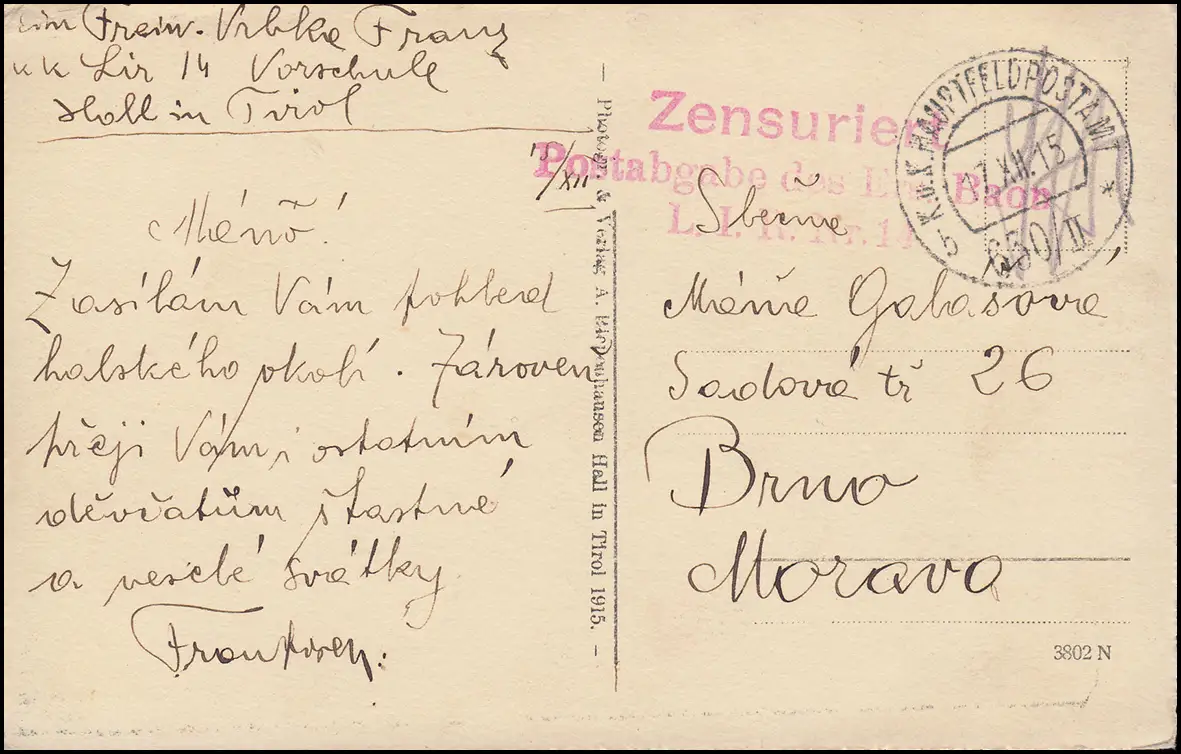 Freiw. Vrbka Franz
k k Lir 14 Vorschule
Hall in Tirol
15/XII
Máňo!
Zasílám Vám pohled
halského okolí. Zároven
přeji Vám i ostatním
děvčatům šťastné
a veselé svátky
František.
Photogr. & Verlag A. Hall in Tirol 1915.
Zensuriert
Postabgabe des Ers. Baon
L. I. R. Nr. 14
K.u.K. HAUPTFELDPOSTAMT
XII. 15
630/II
Slečně
Máňa Galašová
Sadová tř 26
Brno
Morava
3802 N